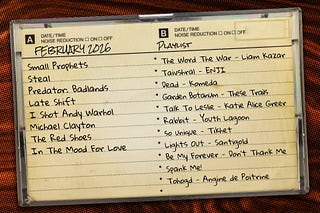 A DATE/TIME
NOISE REDUCTION ☐ ON ☐ OFF
FEBRUARY 2026
Small Prophets
Steal
Predator: Badlands
Late Shift
I Shot Andy Warhol
Michael Clayton
The Red Shoes
In The Mood For Love
B DATE/TIME
NOISE REDUCTION ☐ ON ☐ OFF
PLAYLIST
• The Word The War - Liam Kazar
• Taivshral - ENJI
• Dead - Komeda
• Garden Botanum - These Trails
• Talk To Leslie - Katie Alice Greer
• Rabbit - Youth Lagoon
• So Unique - Tikhet
• Lights Out - Santigold
• Be My Forever - Don't Thank Me
Spank Me!
• Tohogd - Angine de Poitrine